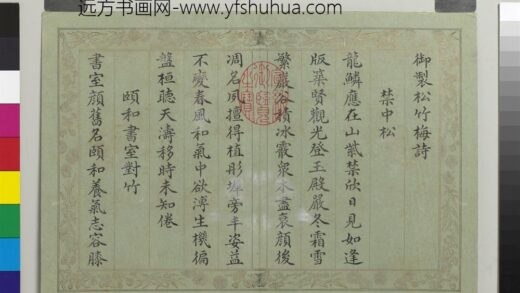 远方书画网-www.yfshuhua.com
御製松竹梅詩
禁中松
龍鱗應在山紫禁欣日見如逢
版築賢觀光登玉殿嚴冬霜雪
繁巖谷積冰霰衆木盡衰顏後
凋名夙擅得植彤墀旁丰姿益
不變春風和氣中欲溥生機徧
盤桓聽天濤移時未知倦
頤和書室對竹
書室顏舊名頤和養氣志容膝